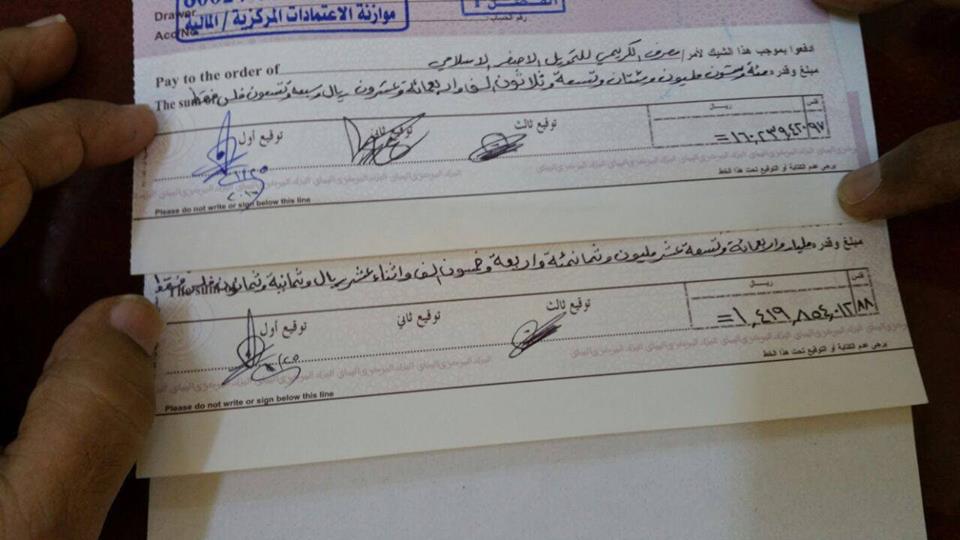 Drawer
موازنة الاعتمادات المركزية / المالية
رقم الحساب
Acc/No
ادفعوا بموجب هذا الشيك لأمر / مصرف الكريمي للتمويل الاصغر الاسلامي
Pay to the order of
مبلغ وقدره مئة وستون مليون ومئتان وتسعة وثلاثون الف واربعمائة وعشرون ريال وسبعة وتسعون فلس فقط
The sum of
توقيع أول
توقيع ثاني
توقيع ثالث
ريال
فلس
=١٦٠,٢٣٩,٤٢٠ ٩٧
يرجى عدم الكتابة أو التوقيع تحت هذا الخط
Please do not write or sign below this line
مبلغ وقدره مليار واربعمائة وتسعة عشر مليون وثمانمئة واربعة وخمسون الف واثناء عشر ريال وثمانية وثمانون فلس فقط
The sum of
توقيع أول
توقيع ثاني
توقيع ثالث
ريال
فلس
=١,٤١٩,٨٥٤,٠١٢ ٨٨
يرجى عدم الكتابة أو التوقيع تحت هذا الخط
Please do not write or sign below this line